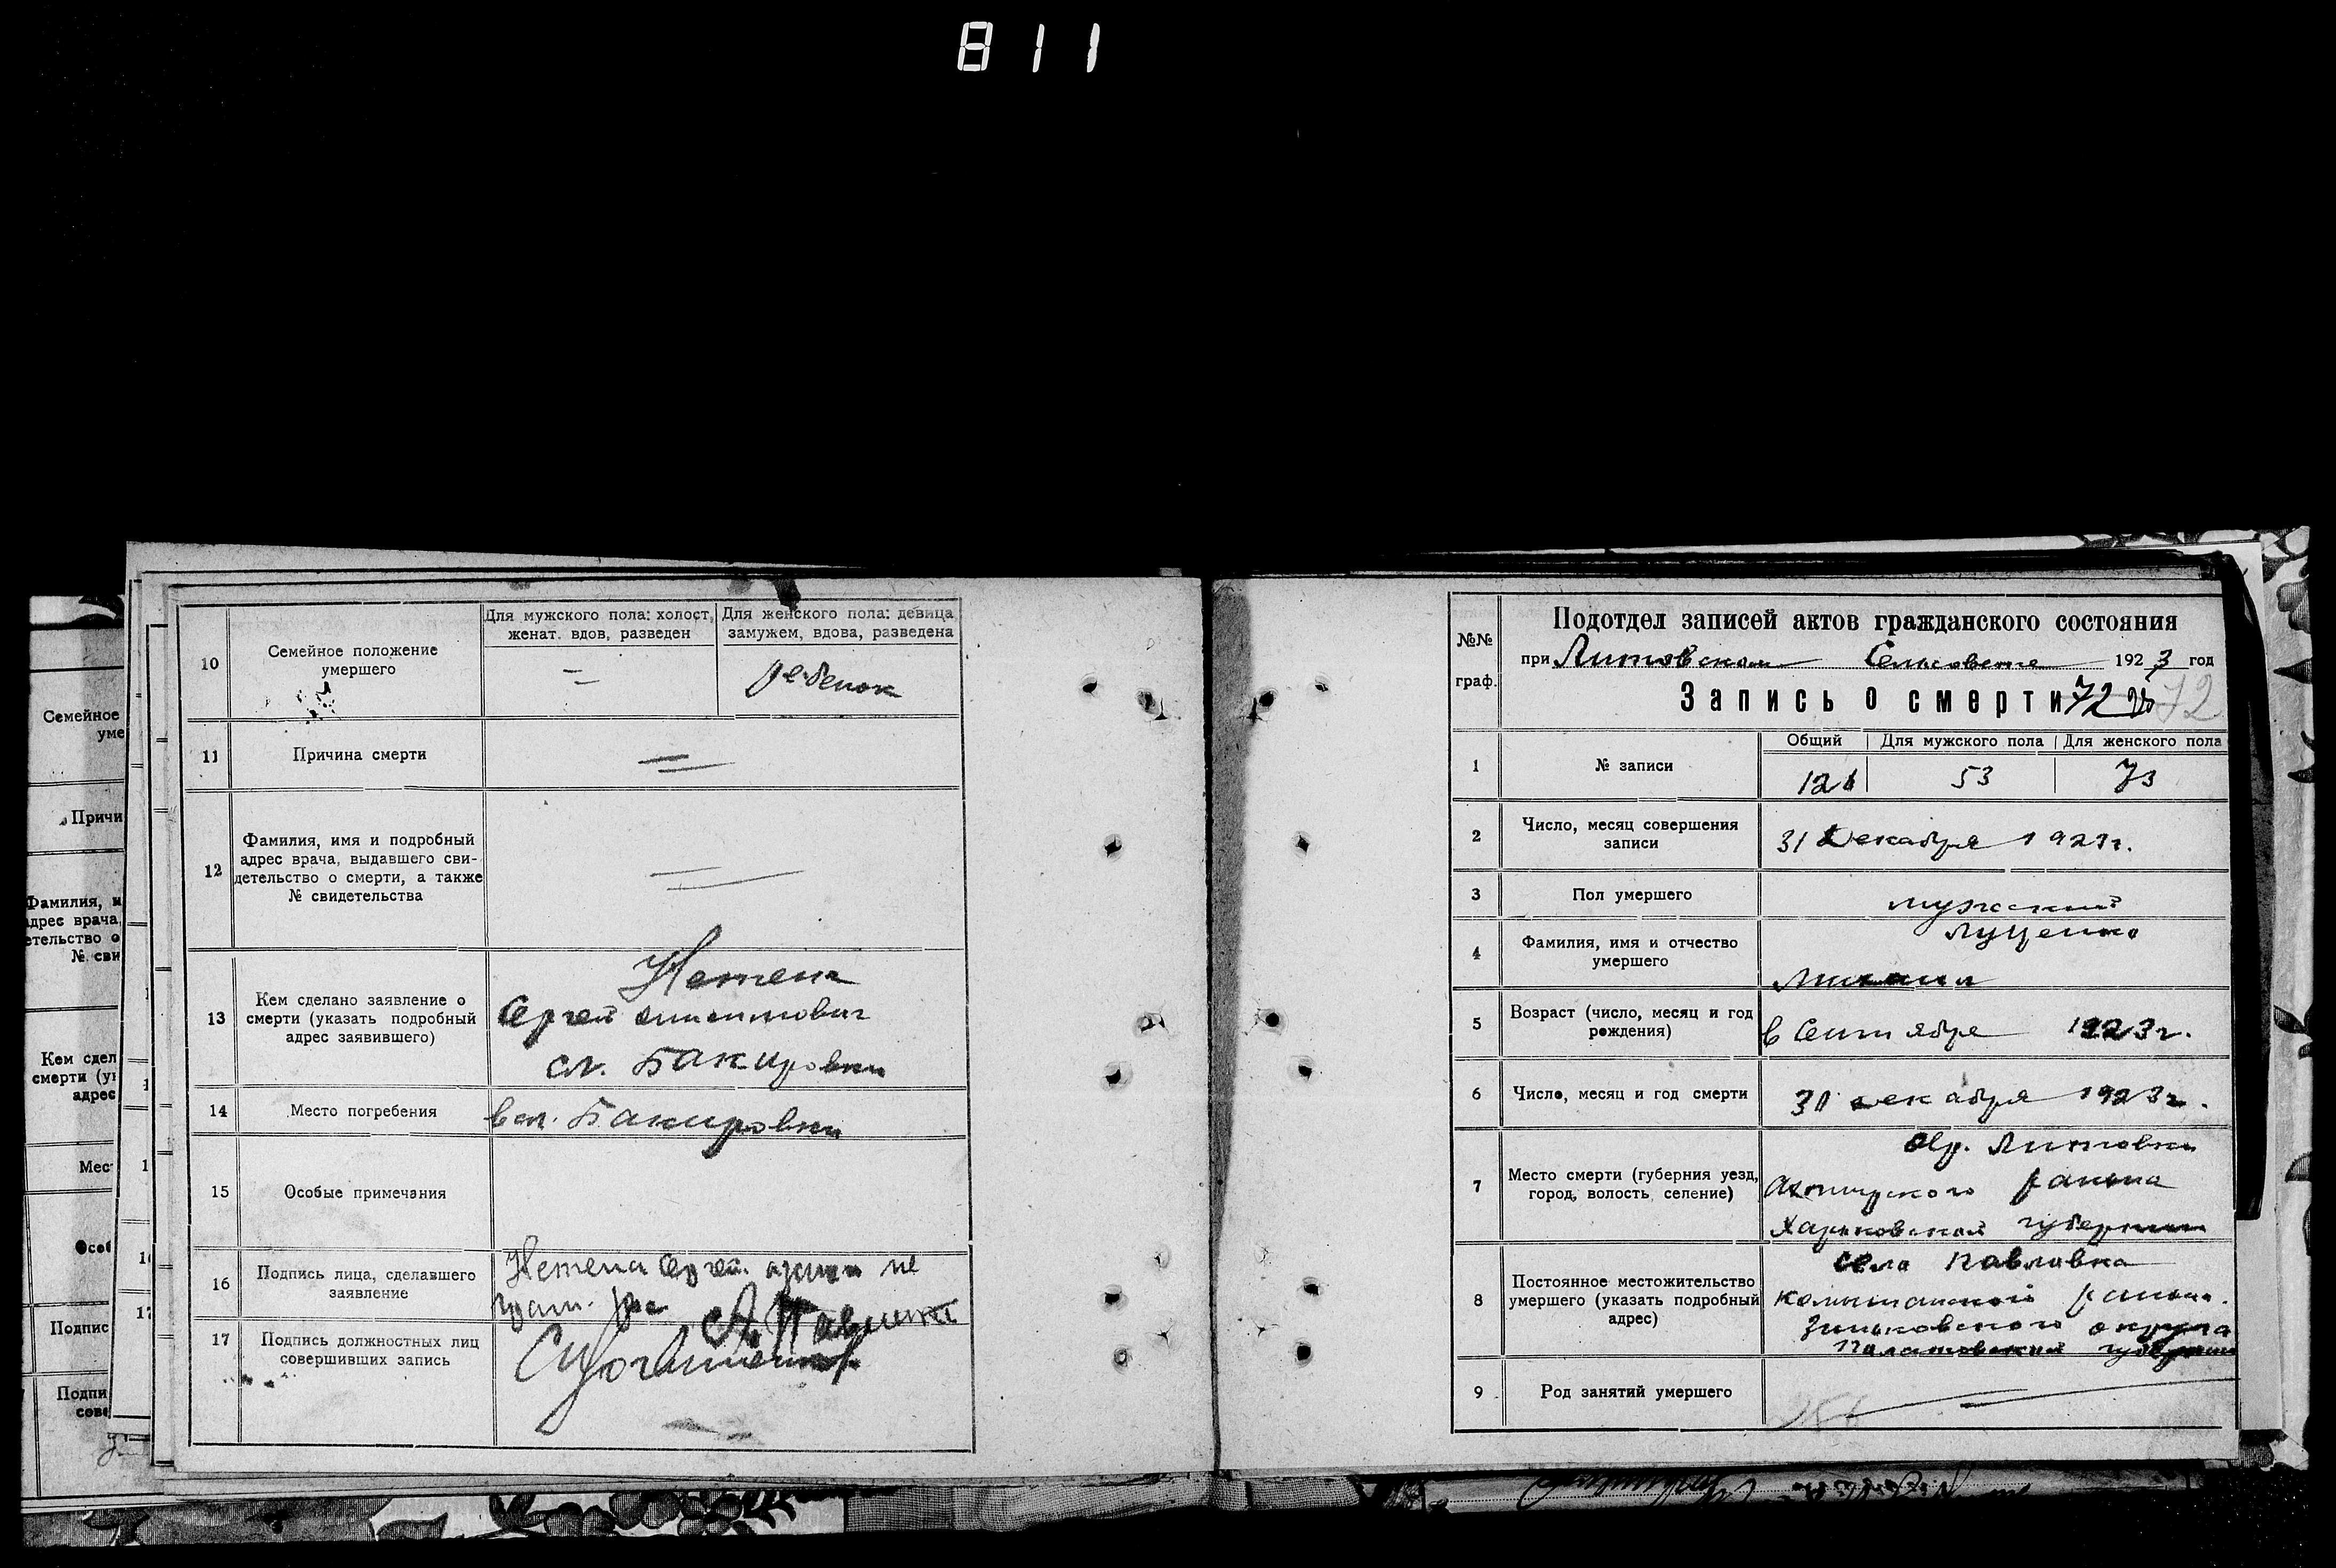 811
Семейное
уме
Причи
Фамилия, и
адрес врача,
етельство о
№ сви
Кем сдел
смерти (у
адрес
Мес
Особ
Подпис
Подпи
сове
10
Семейное положение
умершего
Для мужского пола: холост,
женат. вдов, разведен
Для женского пола: девица
замужем, вдова, разведена
ребенок
11
Причина смерти
12
Фамилия, имя и подробный
адрес врача, выдавшего сви-
детельство о смерти, а также
№ свидетельства
13
Кем сделано заявление о
смерти (указать подробный
адрес заявившего)
Сергей
сл. Бакировки
14
Место погребения
в сл. Бакировки
15
Особые примечания
16
Подпись лица, сделавшего
заявление
не
17
Подпись должностных лиц
совершивших запись
№№
граф.
Подотдел записей актов гражданского состояния
при Литовском Сельсовете 1923 год
Запись о смерти 72 72
1
№ записи
Общий
Для мужского пола
Для женского пола
126
53
73
2
Число, месяц совершения
записи
31 Декабря 1923 г.
3
Пол умершего
мужский
4
Фамилия, имя и отчество
умершего
Луценко
Михаил
5
Возраст (число, месяц и год
рождения)
в Сентября 1923 г.
6
Число, месяц и год смерти
30 декабря 1923 г.
7
Место смерти (губерния уезд,
город, волость, селение)
Литовки
Ахтырского района
Харьковской губернии
8
Постоянное местожительство
умершего (указать подробный
адрес)
села Павловка
района.
Зиньковского округа
Полтавской губернии
9
Род занятий умершего